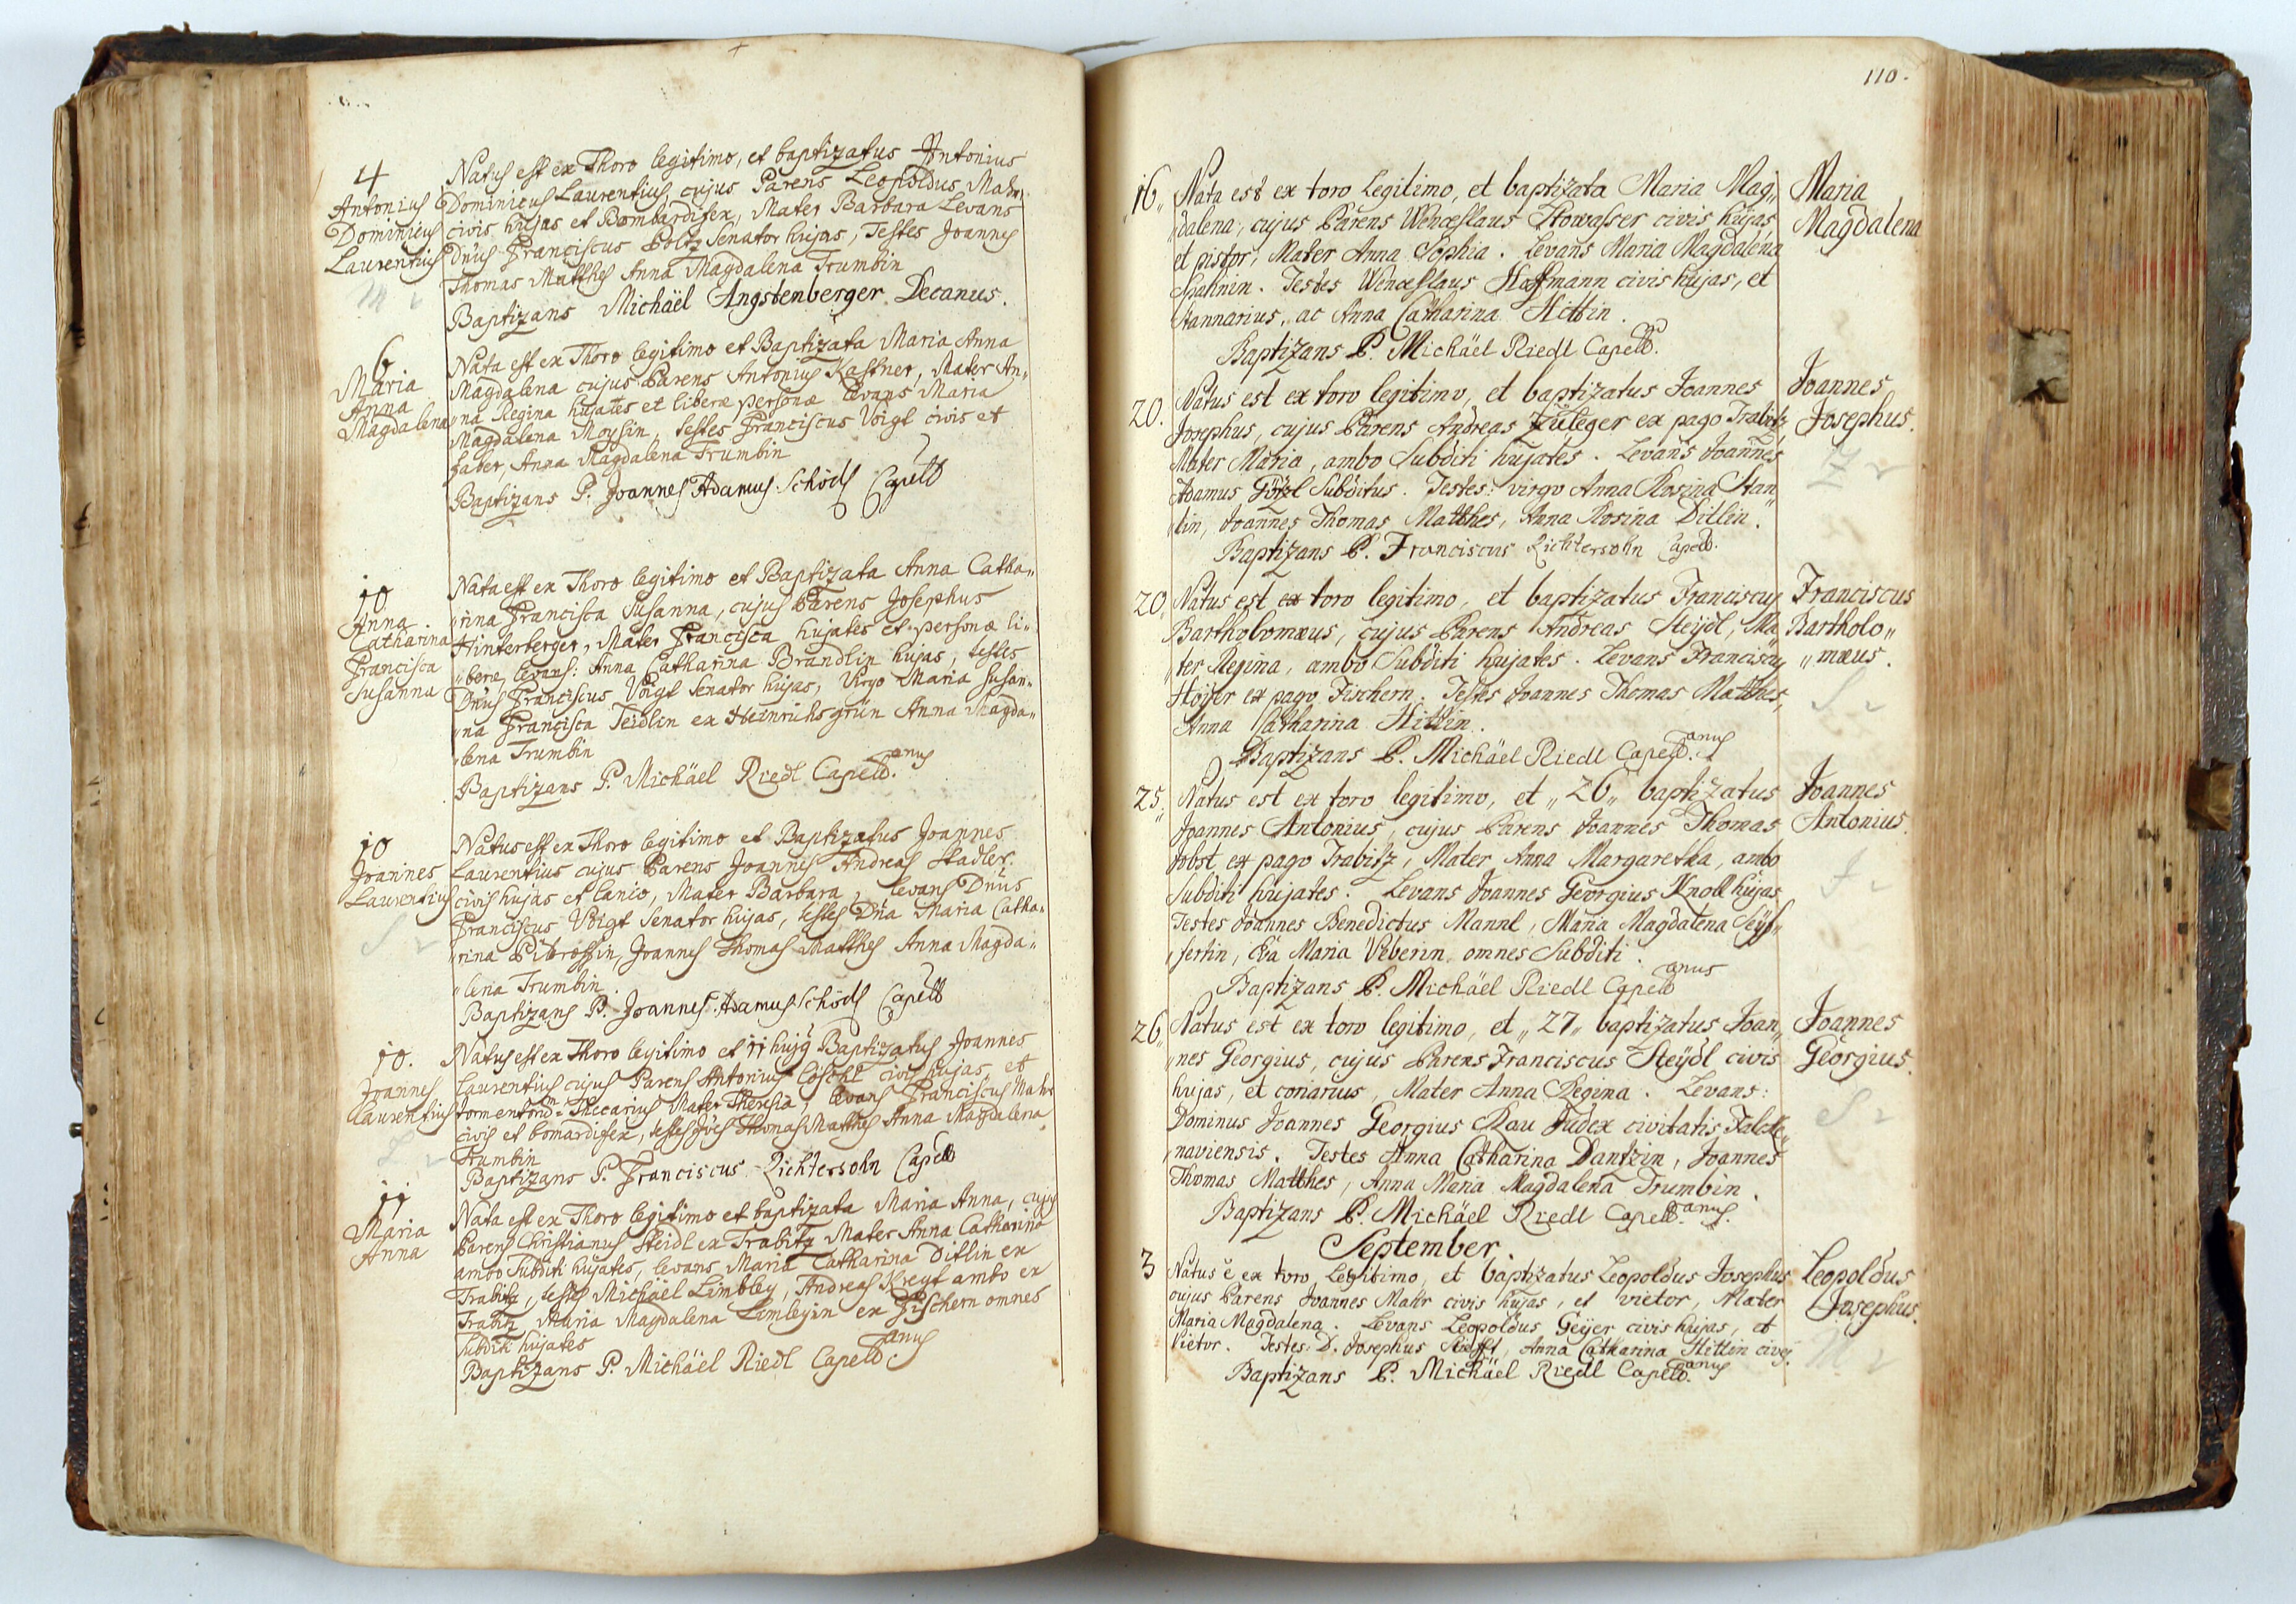 4
Antonius
Dominicus
Laurentius
Natus est ex Thoro legitimo, et baptizatus Antonius
Dominicus Laurentius, cujus Parens Leopoldus Mahr
civis hujas et Bombardifex, Mater Barbara Levans
Dnus Franciscus Poltz Senator hujas, Testes Joannes
Thomas Matthes Anna Magdalena Trumbin
Baptizans Michäel Angstenberger Decanus.
6
Maria
Anna
Magdalena
Nata est ex Thoro legitimo et Baptizata Maria Anna
Magdalena cujus Parens Antonius Kastner, Mater An„
„na Regina hujates et liberæ personæ levans Maria
Magdalena Moysin, testes Franciscus Voigt civis et
faber, Anna Magdalena Trumbin
Baptizans P. Joannes Adamus Schödl Capell
10
Anna
Catharina
Francisca
Susanna
Nata est ex Thoro legitimo et Baptizata Anna Catha„
„rina Francisca Susanna, cujus Parens Josephus
Hinterberger, Mater Francisca hujates et personæ li„
„beræ, levans: Anna Catharina Brandlin hujas, testes
Dnus Franciscus Voigt Senator hujas, Virgo Maria Susan„
„na Francisca Teidlin ex Heinrichsgrün Anna Magda„
„lena Trumbin
Baptizans P. Michäel Riedl Capell.anus
10
Joannes
Laurentius
Natus est ex Thoro legitimo et Baptizatus Joannes
Laurentius cujus Parens Joannes Andreas Stadler
civis hujas et lanio, Mater Barbara, levans Dnus
Franciscus Voigt Senator hujas, testes Dna Maria Catha„
„rina Pibrossin, Joannes Thomas Matthes Anna Magda„
„lena Trumbin.
Baptizans P. Joannes Adamus Schödl Capell
10.
Joannes
Laurentius
Natus est ex Thoro legitimo et 11 hujg Baptizatus Joannes
Laurentius cujus Parens Antonius Löschl civis hujas et
Thecarius Mater Theresia, levans Franciscus Mahr
civis et bomardifex, testes Joes Thomas Matthes Anna Magdalena
Trumbin
Baptizans P. Franciscus Richtersohn Capell
11
Maria
Anna
Nata est ex Thoro legitimo et baptizata Maria Anna, cujus
Parens Christianus Steidl ex Trabitz Mater Anna Catharina
ambo Subditi hujates, levans Maria Catharina Ditlin ex
Trabitz, testes Michäel Limbley, Andreas Kreyt ambo ex
Trabitz Maria Magdalena Lemleyin ex Fischern omnes
subditi hujates
Baptizans P. Michäel Riedl Capell.anus
110.
„16„
Nata est ex toro Legitimo, et baptizata Maria Mag„
„dalena, cujus Parens Wenceslaus Stowasser civis hujas
et pistor, Mater Anna Sophia. Levans Maria Magdalena
Spahnin. Testes Wenceslaus Hoffmann civis hujas, et
stannarius, ac Anna Catharina Hittin.
Baptizans P. Michäel Riedl Capell.
Maria
Magdalena
20.
Natus est ex toro legitimo, et baptizatus Joannes
Josephus, cujus Parens Andreas Züleger ex pago Trabitz
Mater Maria, ambo Subditi hujates. Levans Joannes
Adamus Götzl Subditus. Testes: virgo Anna Rosina Stan„
„lin, Joannes Thomas Matthes, Anna Rosina Ditlin.
Baptizans P. Franciscus Richtersohn Capell.
Joannes
Josephus.
20
Natus est ex toro legitimo, et baptizatus Franciscus
Bartholomæus, cujus Parens Andreas Steÿdl, Ma
„ter Regina, ambo Subditi hujates. Levans Franciscus
Höÿer ex pago Fischern. Testes Joannes Thomas Matthes,
Anna Catharina Hittin.
Baptizans P. Michäel Riedl Capell.anus
Franciscus
Bartholo„
„mæus.
25„
Natus est ex toro legitimo, et „26„ baptizatus
Joannes Antonius, cujus Parens Joannes Thomas
Jobst ex pago Trabitz, Mater Anna Margaretha, ambo
Subditi hujates. Levans Joannes Georgius Knoll hujas
Testes Joannes Benedictus Mannl, Maria Magdalena Seÿf„
„fertin, Eva Maria Veberin omnes Subditi.
Baptizans P. Michäel Riedl Capellanus
Joannes
Antonius.
26„
Natus est ex toro legitimo, et „27„ baptizatus Joan„
„nes Georgius, cujus Parens Franciscus Steÿdl civis
hujas, et coriarius, Mater Anna Regina. Levans:
Dominus Joannes Georgius Rau Judex civitatis Falcke„
„naviensis. Testes Anna Catharina Dantzin, Joannes
Thomas Matthes, Anna Maria Magdalena Trumbin.
Baptizans P. Michäel Riedl Capell.anus.
Joannes
Georgius.
September.
3
Natus ē ex toro Legitimo, et baptizatus Leopoldus Josephus
cujus Parens Joannes Mahr civis hujas, et vietor, Mater
Maria Magdalena. Levans Leopoldus Geÿer civis hujas, et
Vietor. Testes: D. Josephus, Anna Catharina Hittin cives.
Baptizans P. Michäel Riedl Capell.anus
Leopoldus
Josephus.